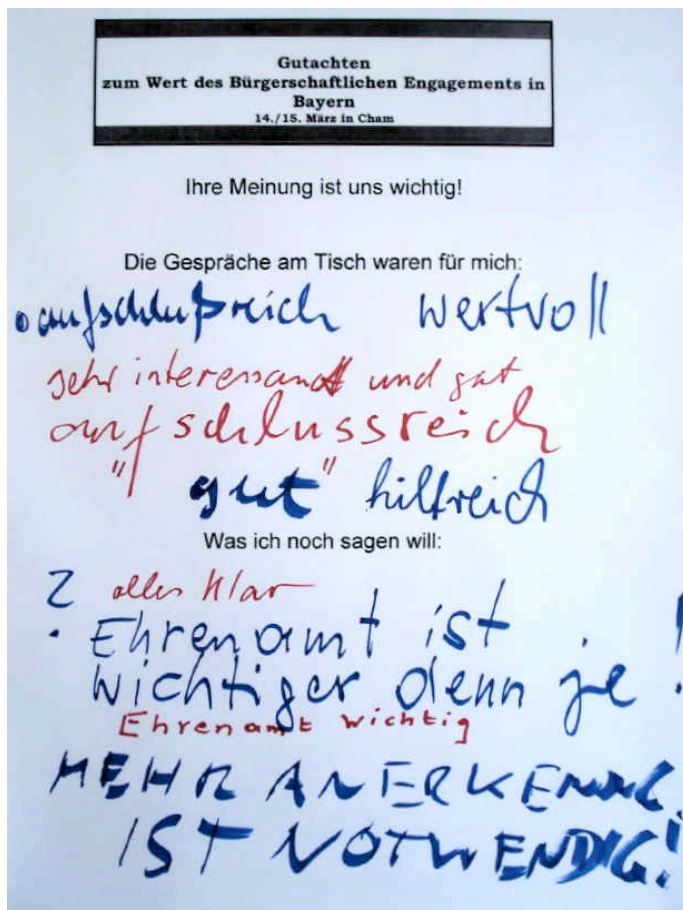 Gutachten
zum Wert des Bürgerschaftlichen Engagements in
Bayern
14./15. März in Cham
Ihre Meinung ist uns wichtig!
Die Gespräche am Tisch waren für mich:
aufschlußreich wertvoll
sehr interessant und gut
aufschlussreich
"gut" hilfreich
Was ich noch sagen will:
? alles klar
Ehrenamt ist
wichtiger denn je!
Ehrenamt wichtig
MEHR ANERKENNUNG
IST NOTWENDIG!